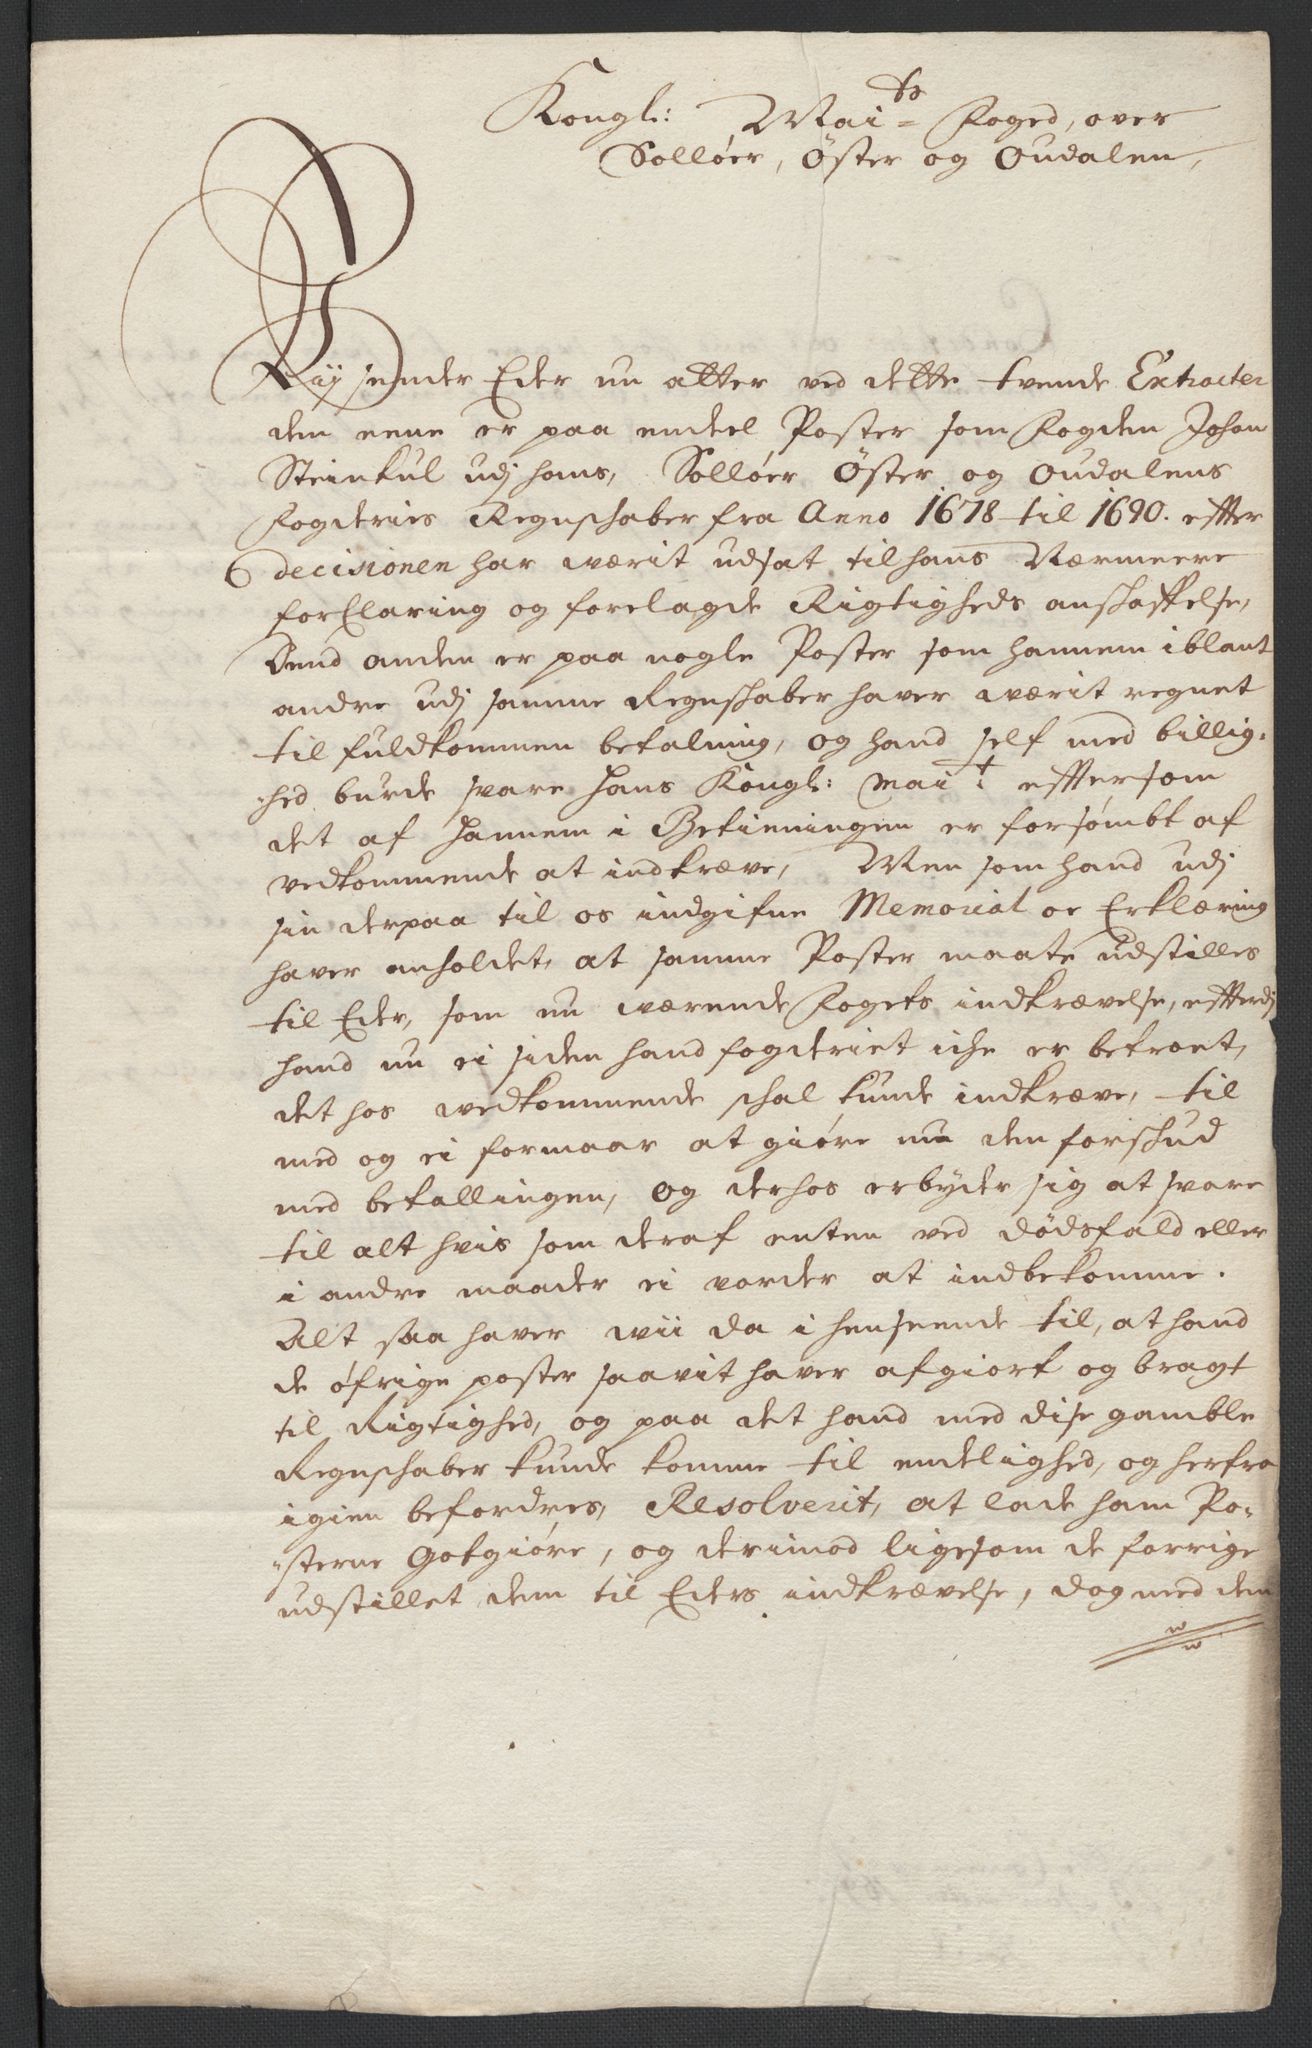 Kongl: Mai:ts Foged, over
Solløer, Öster og Oudalen,
Wij sender Eder nu atter ved dette tvende Extracter
den eene er paa endeel Poster som Fogden Johan
Steinkul udj hans, Solløer Öster og Oudalens
Fogderies Regnschaber fra Anno 1678 til 1690. effter
decisionen har wærit udsat til hans Nærmeere
forklaring og forelagde Rigtigheds anschaffelse,
Dend anden er paa nogle Poster som hannem iblant
andre udj samme Regnschaber haver wærit regnet
til fuldkommen betalning, og hand self med billig-
-hed burde svare Hans Kongl: Mai:t efftersom
det af Hannem i Betieningen er forsømbt af
vedkommende at indkræve, Men som hand udj
sin derpaa til os indgifne Memorial oc Erklæring
haver anholdet, at samme Poster maate udstilles
til Eder, som nu wærende Fogets indkrævelse, efftterdj
hand nu ei siden hand fogderiet iche er betroet,
det hos wedkommende schal kunde indkræve, til
med og ei formaar at giøre nu den forschud
med betallingen, og derhos erbyder sig at svare
til alt hvis som deraf enten ved dödsfald eller
i andre maader ei vorder at indbekomme.
Alt saa haver wii da i henseende til, at hand
de öfrige poster saavit haver afgiort og bragt
til Rigtighed, og paa det hand med dise gamble
Regnschaber kunde komme til endelighed, og herfra
igien befordres, Resolverit, at lade ham Po-
-sterne Gotgiøre, og derimod ligesom de forrige
udstillet dem til Eders indkrævelse, dog med dem